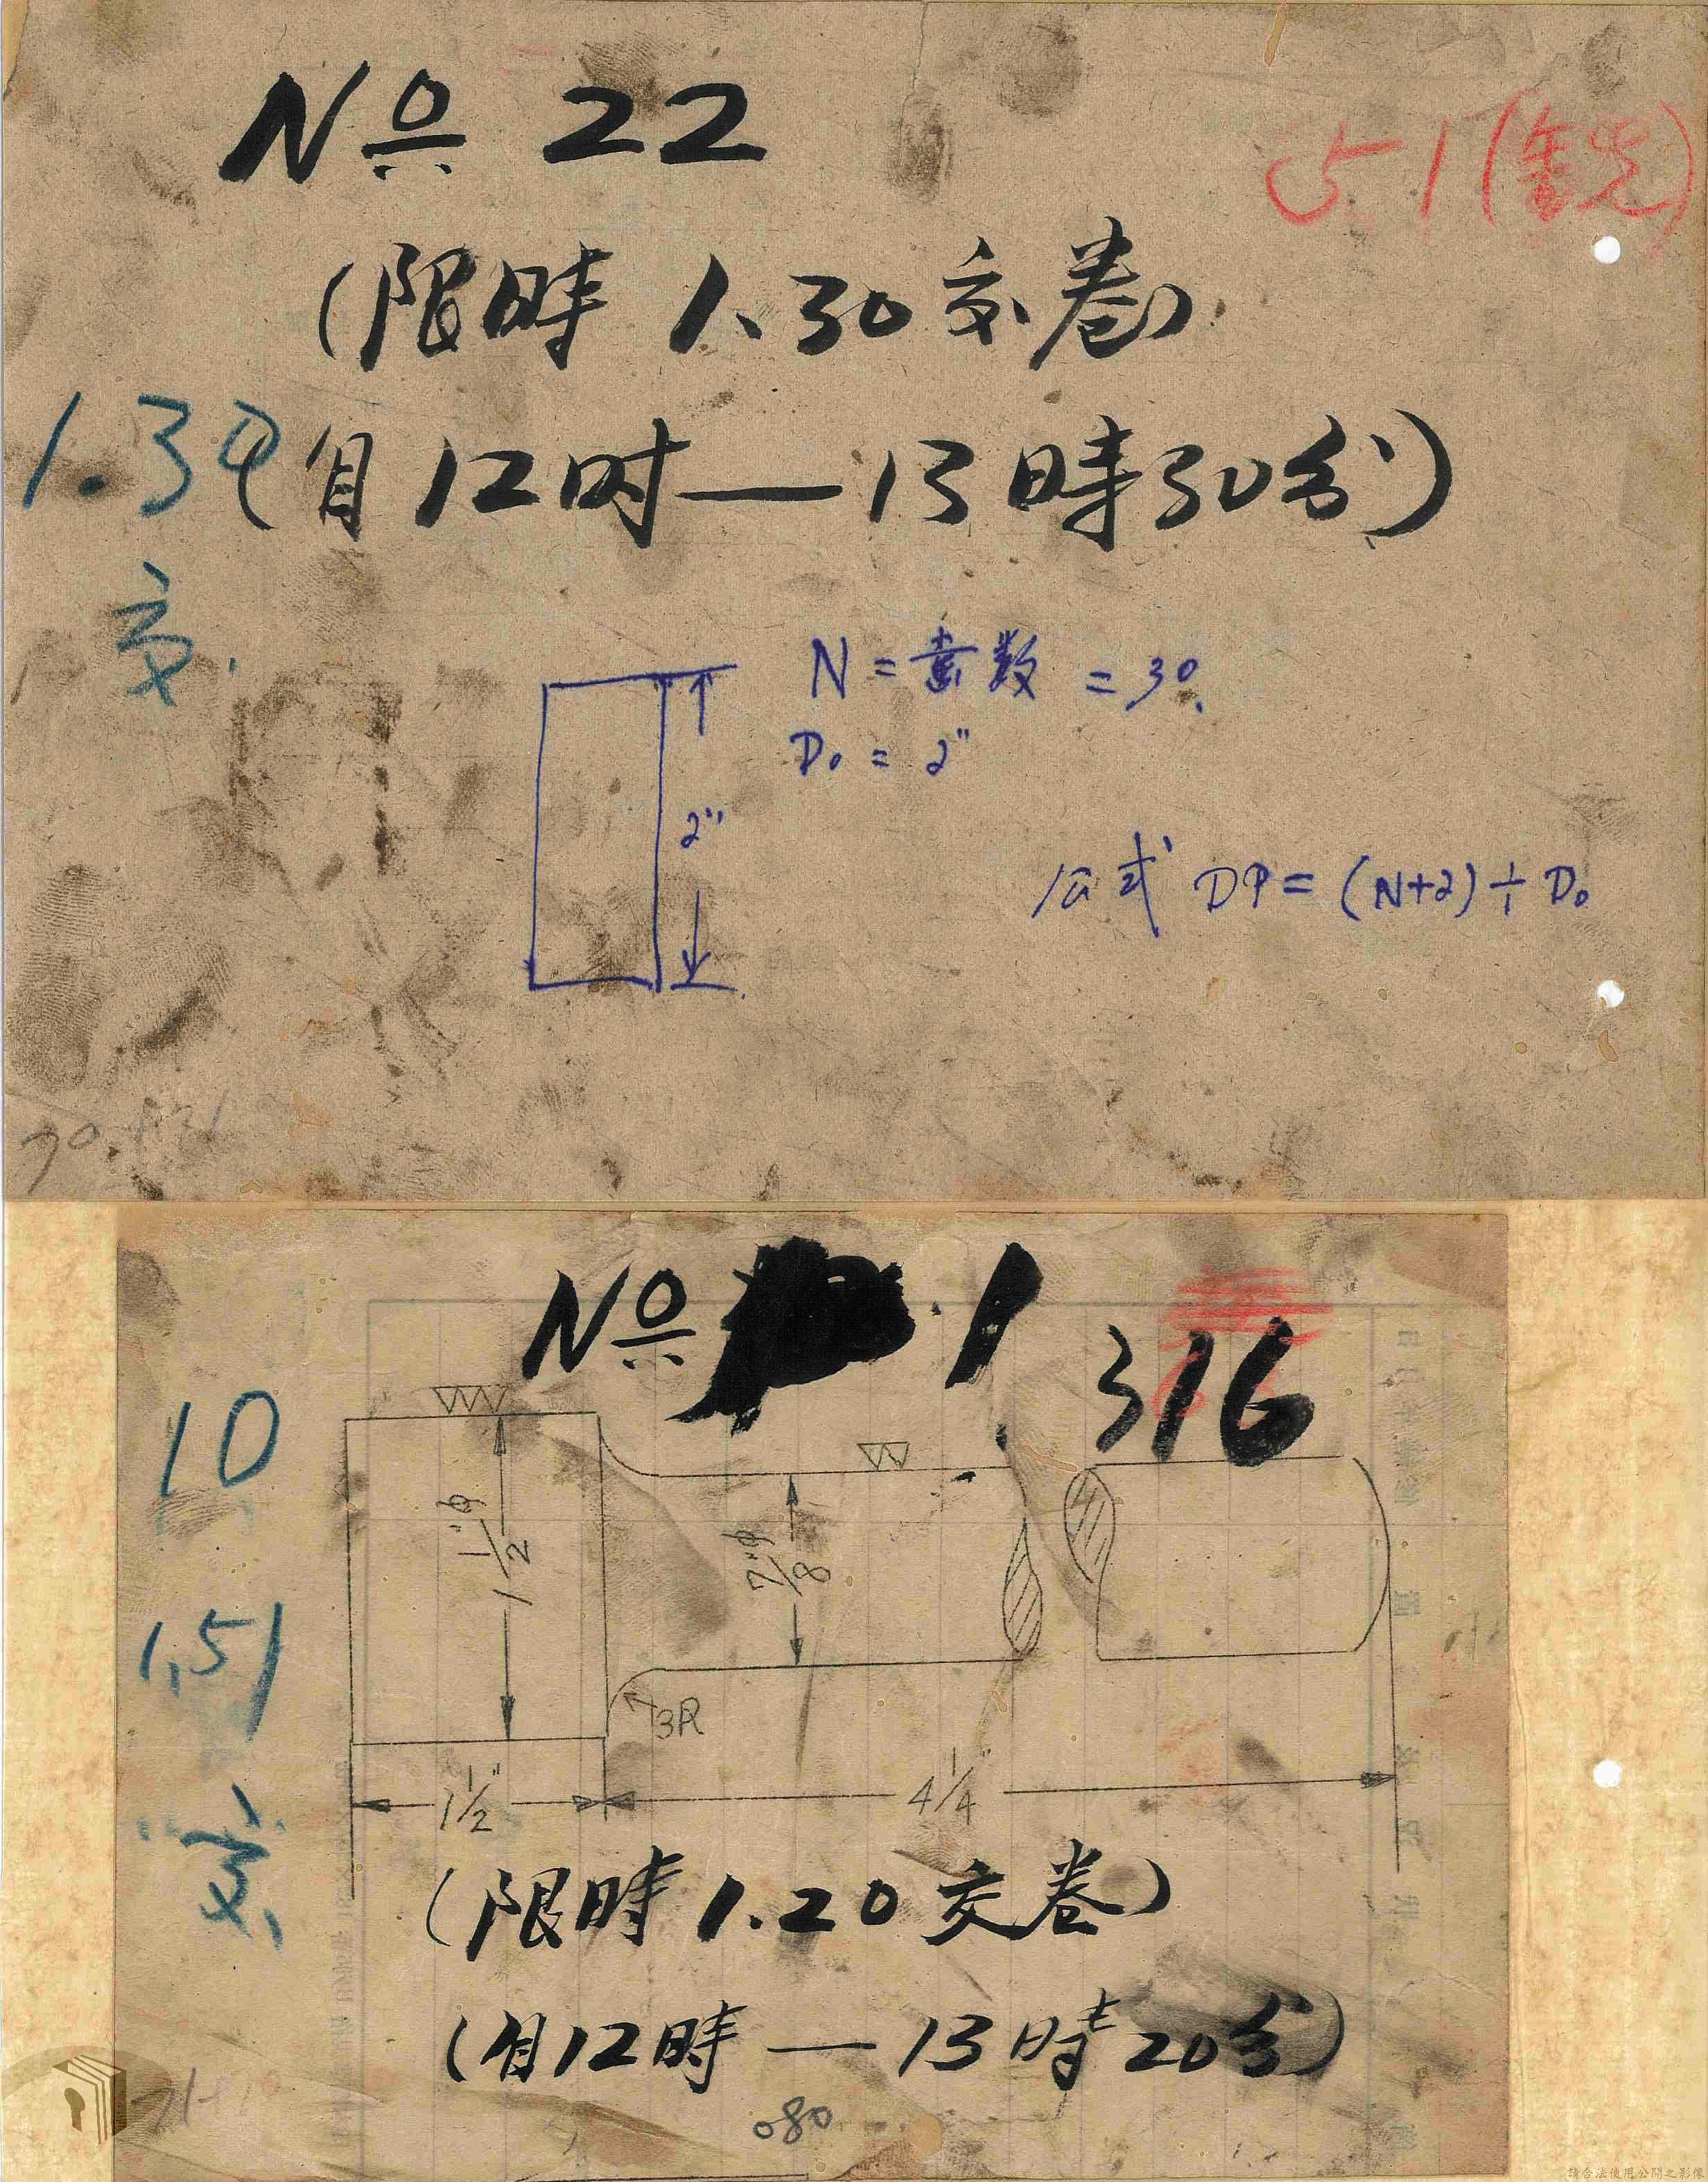 No 22
51(金光)
(限時 1.30交卷)
1.34
交.
(自12时—13時30分)
N = 齿数 = 30.
D₀ = 2"
2"
公式 DP = (N+2) ÷ D₀
No 1
316
10
1.51
交
1 1/2"φ
7/8"φ
3R
1 1/2"
4 1/4"
(限時1.20交卷)
(自12時—13時20分)
080
請合法使用公開之影像